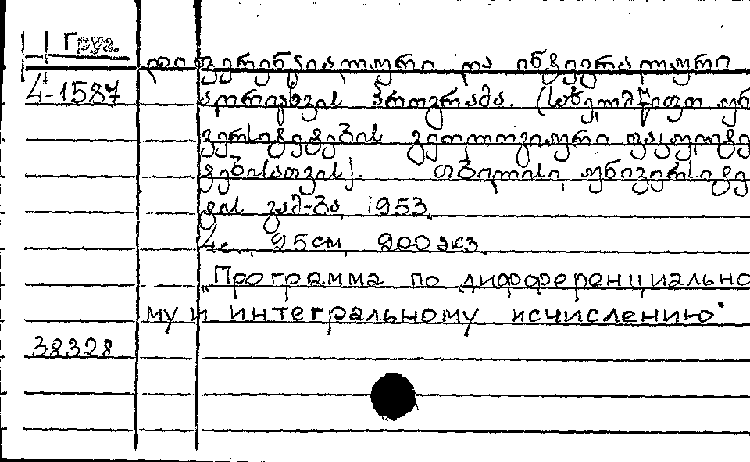 Груз.
დიფერენციალური და ინტეგრალური
4-1587 აღრიცხვის პროგრამა. (სახელმწიფო უნ
ვერსიტეტების გეოლოგიური ფაკულტე
ტებისათვის). თბილისი, უნივერსიტე
ტის გამ-ბა, 1953.
4с., 25см, 200экз.
„Программа по дифференциально
му и интегральному исчислению"
38328